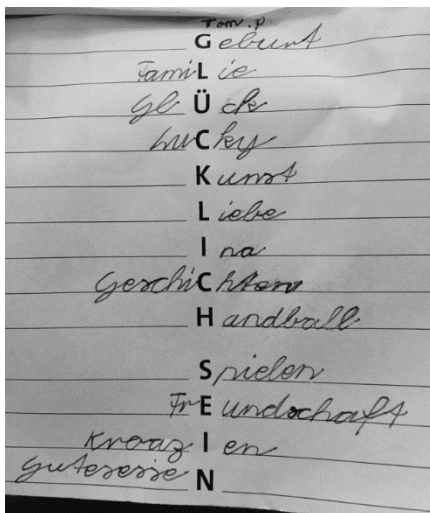 Tom.P
Geburt
FamiLie
GlÜck
LuCky
Kunst
Liebe
Ina
GeschiChten
Handball
Spielen
FrEundschaft
KroazIen
GutesesseN